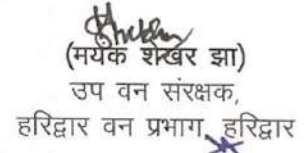 (मयंक शेखर झा)
उप वन संरक्षक,
हरिद्वार वन प्रभाग, हरिद्वार